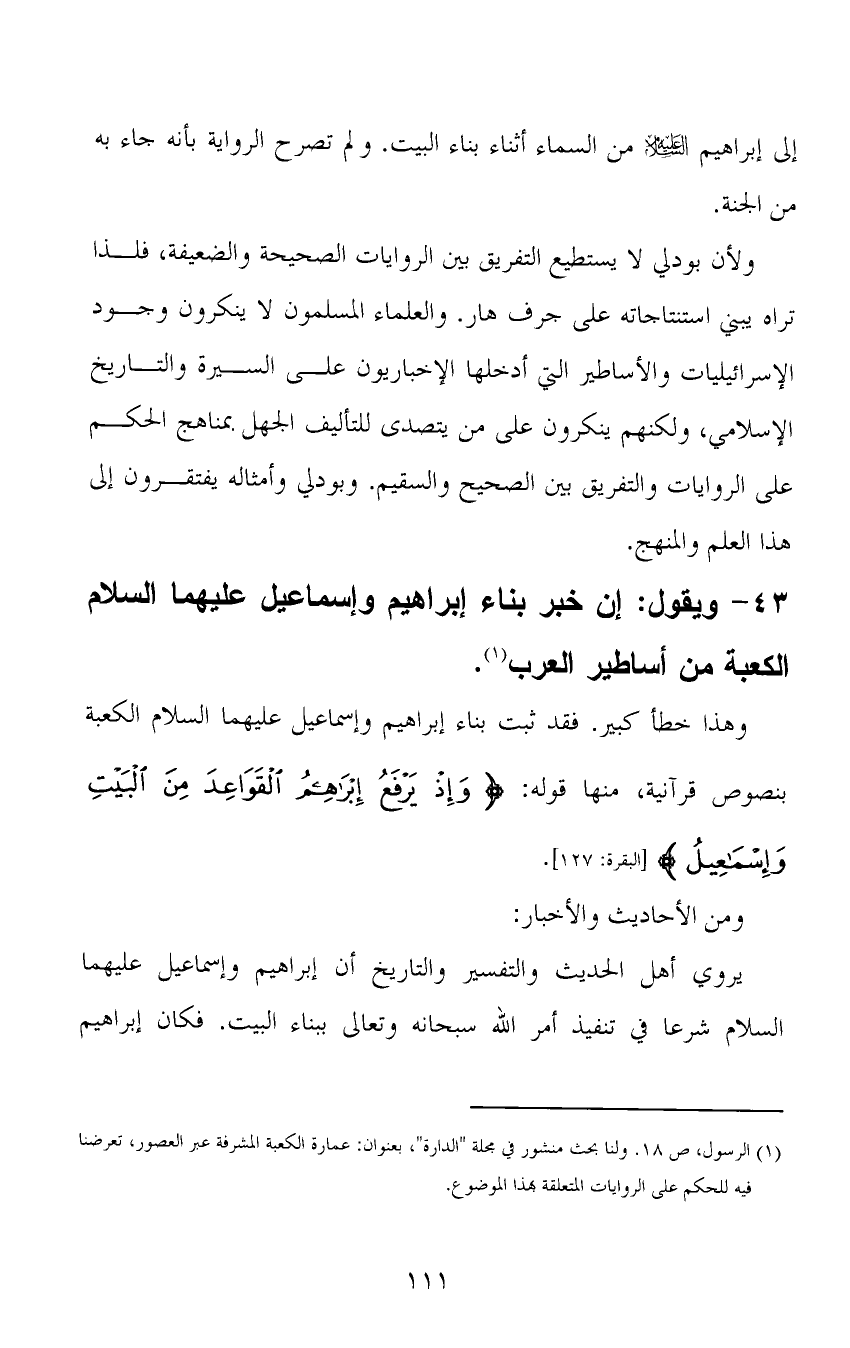 إلى إبراهيم عليه السلام من السماء أثناء بناء البيت. ولم تصرح الرواية بأنه جاء به
من الجنة.
ولأن بودلي لا يستطيع التفريق بين الروايات الصحيحة والضعيفة، فلــذا
تراه يبني استنتاجاته على جرف هار. والعلماء المسلمون لا ينكرون وجــود
الإسرائيليات والأساطير التي أدخلها الإخباريون علــى الســيرة والتــاريخ
الإسلامي، ولكنهم ينكرون على من يتصدى للتأليف الجهل بمناهج الحكــم
على الروايات والتفريق بين الصحيح والسقيم. وبودلي وأمثاله يفتقــرون إلى
هذا العلم والمنهج.
٤٣- ويقول: إن خبر بناء إبراهيم وإسماعيل عليهما السلام
الكعبة من أساطير العرب(١).
وهذا خطأ كبير. فقد ثبت بناء إبراهيم وإسماعيل عليهما السلام الكعبة
بنصوص قرآنية، منها قوله: ﴿ وَإِذْ يَرْفَعُ إِبْرَٰهِـۧمُ ٱلْقَوَاعِدَ مِنَ ٱلْبَيْتِ
وَإِسْمَـٰعِيلُ ﴾ [البقرة: ١٢٧].
ومن الأحاديث والأخبار:
يروي أهل الحديث والتفسير والتاريخ أن إبراهيم وإسماعيل عليهما
السلام شرعا في تنفيذ أمر الله سبحانه وتعالى ببناء البيت. فكان إبراهيم
(١) الرسول، ص ١٨. ولنا بحث منشور في مجلة "الدارة"، بعنوان: عمارة الكعبة المشرفة عبر العصور، تعرضنا
فيه للحكم على الروايات المتعلقة بهذا الموضوع.
١١١